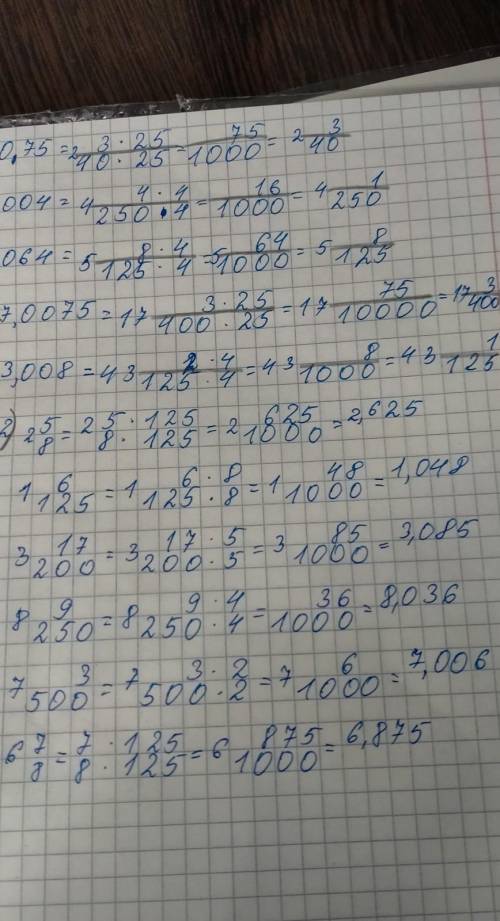 0,75 = 2 3·25/40·25 = 75/1000 = 2 3/40
004 = 4 4·4/250·4 = 16/1000 = 4 1/250
064 = 5 8·4/125·4 = 5 64/1000 = 5 8/125
7,0075 = 17 3·25/400·25 = 17 75/10000 = 17 3/400
3,008 = 43 2·4/125·4 = 43 8/1000 = 43 1/125
2) 2 5/8 = 2 5·125/8·125 = 2 625/1000 = 2,625
1 6/125 = 1 6·8/125·8 = 1 48/1000 = 1,048
3 17/200 = 3 17·5/200·5 = 3 85/1000 = 3,085
8 9/250 = 8 9·4/250·4 = 36/1000 = 8,036
7 3/500 = 7 3·2/500·2 = 7 6/1000 = 7,006
6 7/8 = 7·125/8·125 = 6 875/1000 = 6,875